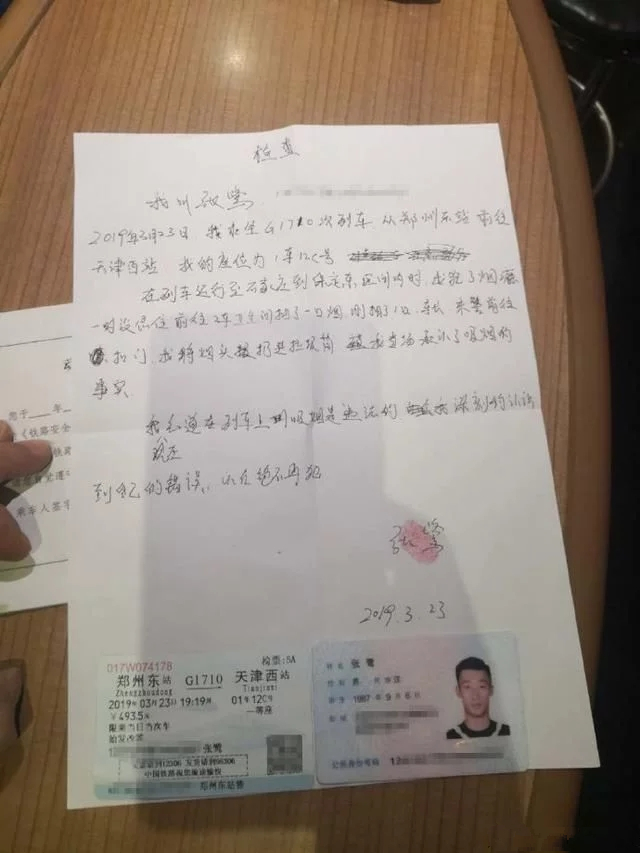 检查
我叫张鹭
2019年3月23日,我乘坐G1710次列车 从郑州东站 前往
天津西站 我的座位为 1车12C号
在列车运行至石家庄到保定东区间内时,我犯了烟瘾
一时没忍住前往2车卫生间抽了一口烟,刚抽了1口,车长 来警前往
扣门,我将烟头扔进垃圾筒 我当场承认了吸烟的
事实
我知道在列车上吸烟是违法的 深刻的认识
我还
到自己的错误, 以后绝不再犯
张鹭
2019.3.23
您于____年
《铁路安全
乘车人签字
017W074178 检票:5A
郑州东站 G1710 天津西站
Zhengzhoudong Tianjinxi
2019年03月23日19:19开 01车12C号
¥493.5元 一等座
限乘当日当次车
始发改签
张鹭
买票请到12306 发货请到95306
中国铁路祝您旅途愉快
郑州东站售
姓名 张鹭
性别 男 民族 汉
出生 1987年9月6日
住址
公民身份号码 12